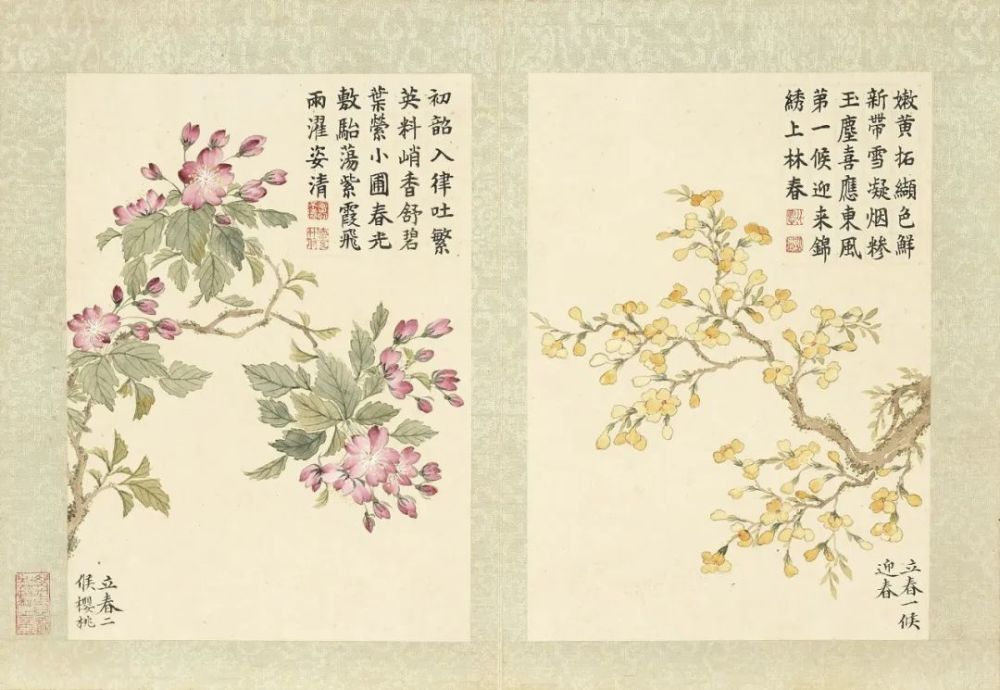 嫩黄拓纈色鮮
新帶雪凝烟糁
玉塵喜應東風
第一候迎来錦
綉上林春
立春一候
迎春
初韶入律吐繁
英料峭香舒碧
葉縈小圃春光
敷駘蕩紫霞飛
雨濯姿清
立春二
候櫻桃